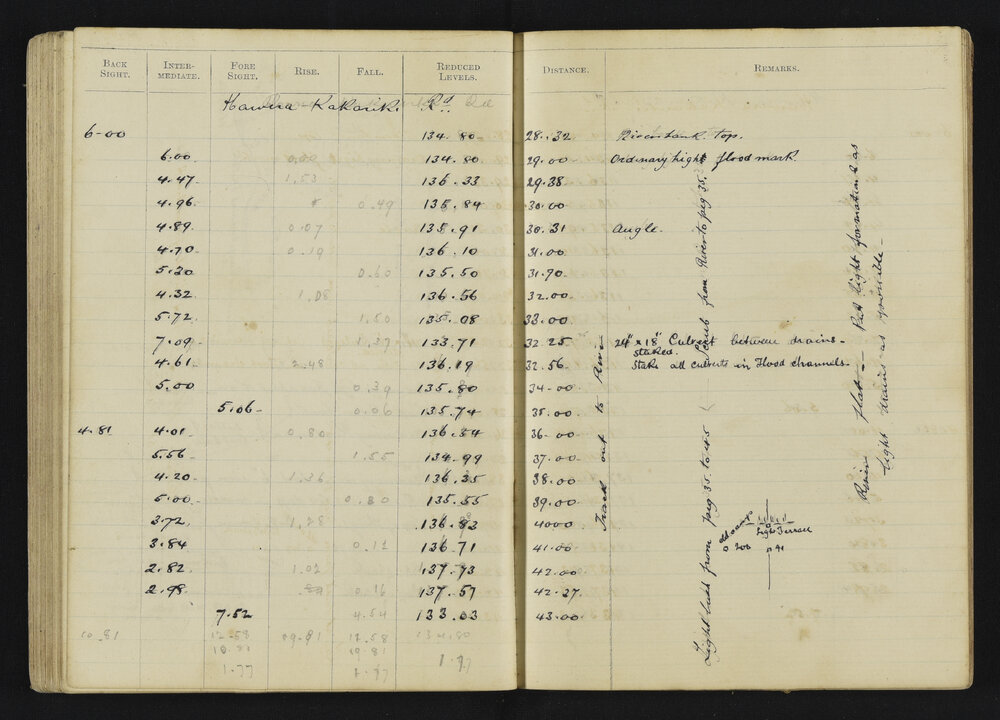 BACK SIGHT. INTER-MEDIATE. FORE SIGHT. RISE. FALL. REDUCED LEVELS. DISTANCE. REMARKS.
Hawera Kakariki Rd
6-00 134.80 28.32 River bank top.
6.00 0.00 134.80 29.00 Ordinary hight flood mark.
4.47 1.53 136.33 29.38
4.96 0.49 135.84 30.00
4.89 0.07 135.91 30.31 Angle.
4.70 0.19 136.10 31.00
5.30 0.60 135.50 31.90
4.32 1.08 136.56 32.00
5.72 1.50 135.08 33.00
7.09 1.37 133.71 32.25 24" x 18" Culvert between drains - staked.
4.61 2.48 136.19 32.56 Stake all culverts in Flood channels.
5.00 0.39 135.80 34.00
5.06 0.06 135.74 35.00
4.81 4.01 0.80 136.54 36.00
5.56 1.55 134.99 37.00
4.20 1.36 136.35 38.00
5.00 0.80 135.55 39.00
3.72 1.28 136.83 4000
3.84 0.12 136.71 41.00
2.82 1.02 137.73 42.00
2.98 0.16 137.57 42.27
7.52 4.54 133.03 43.00
10.81 12.58 09.81 11.58 134.80
10.81 19.81
1.77 1.77 1.77
Track out to River
Light bush from peg 35. to 45
Scrub from River to peg 35.
River flat - Put light formation & as
light drains as possible -
old camp
Light Terrace
200
41